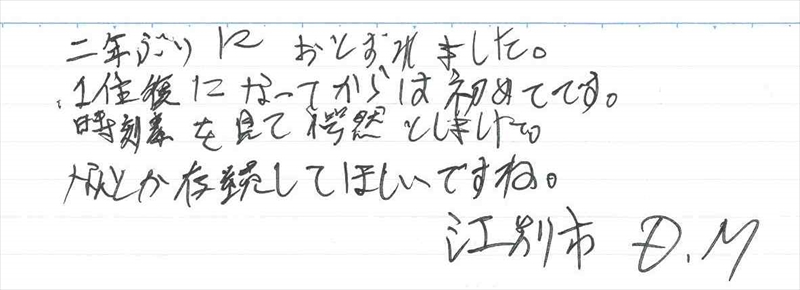 二年ぶりに おとずれました。
1往復になってからは初めてです。
時刻表を見て愕然としました。
何とか存続してほしいですね。
江別市 D.M